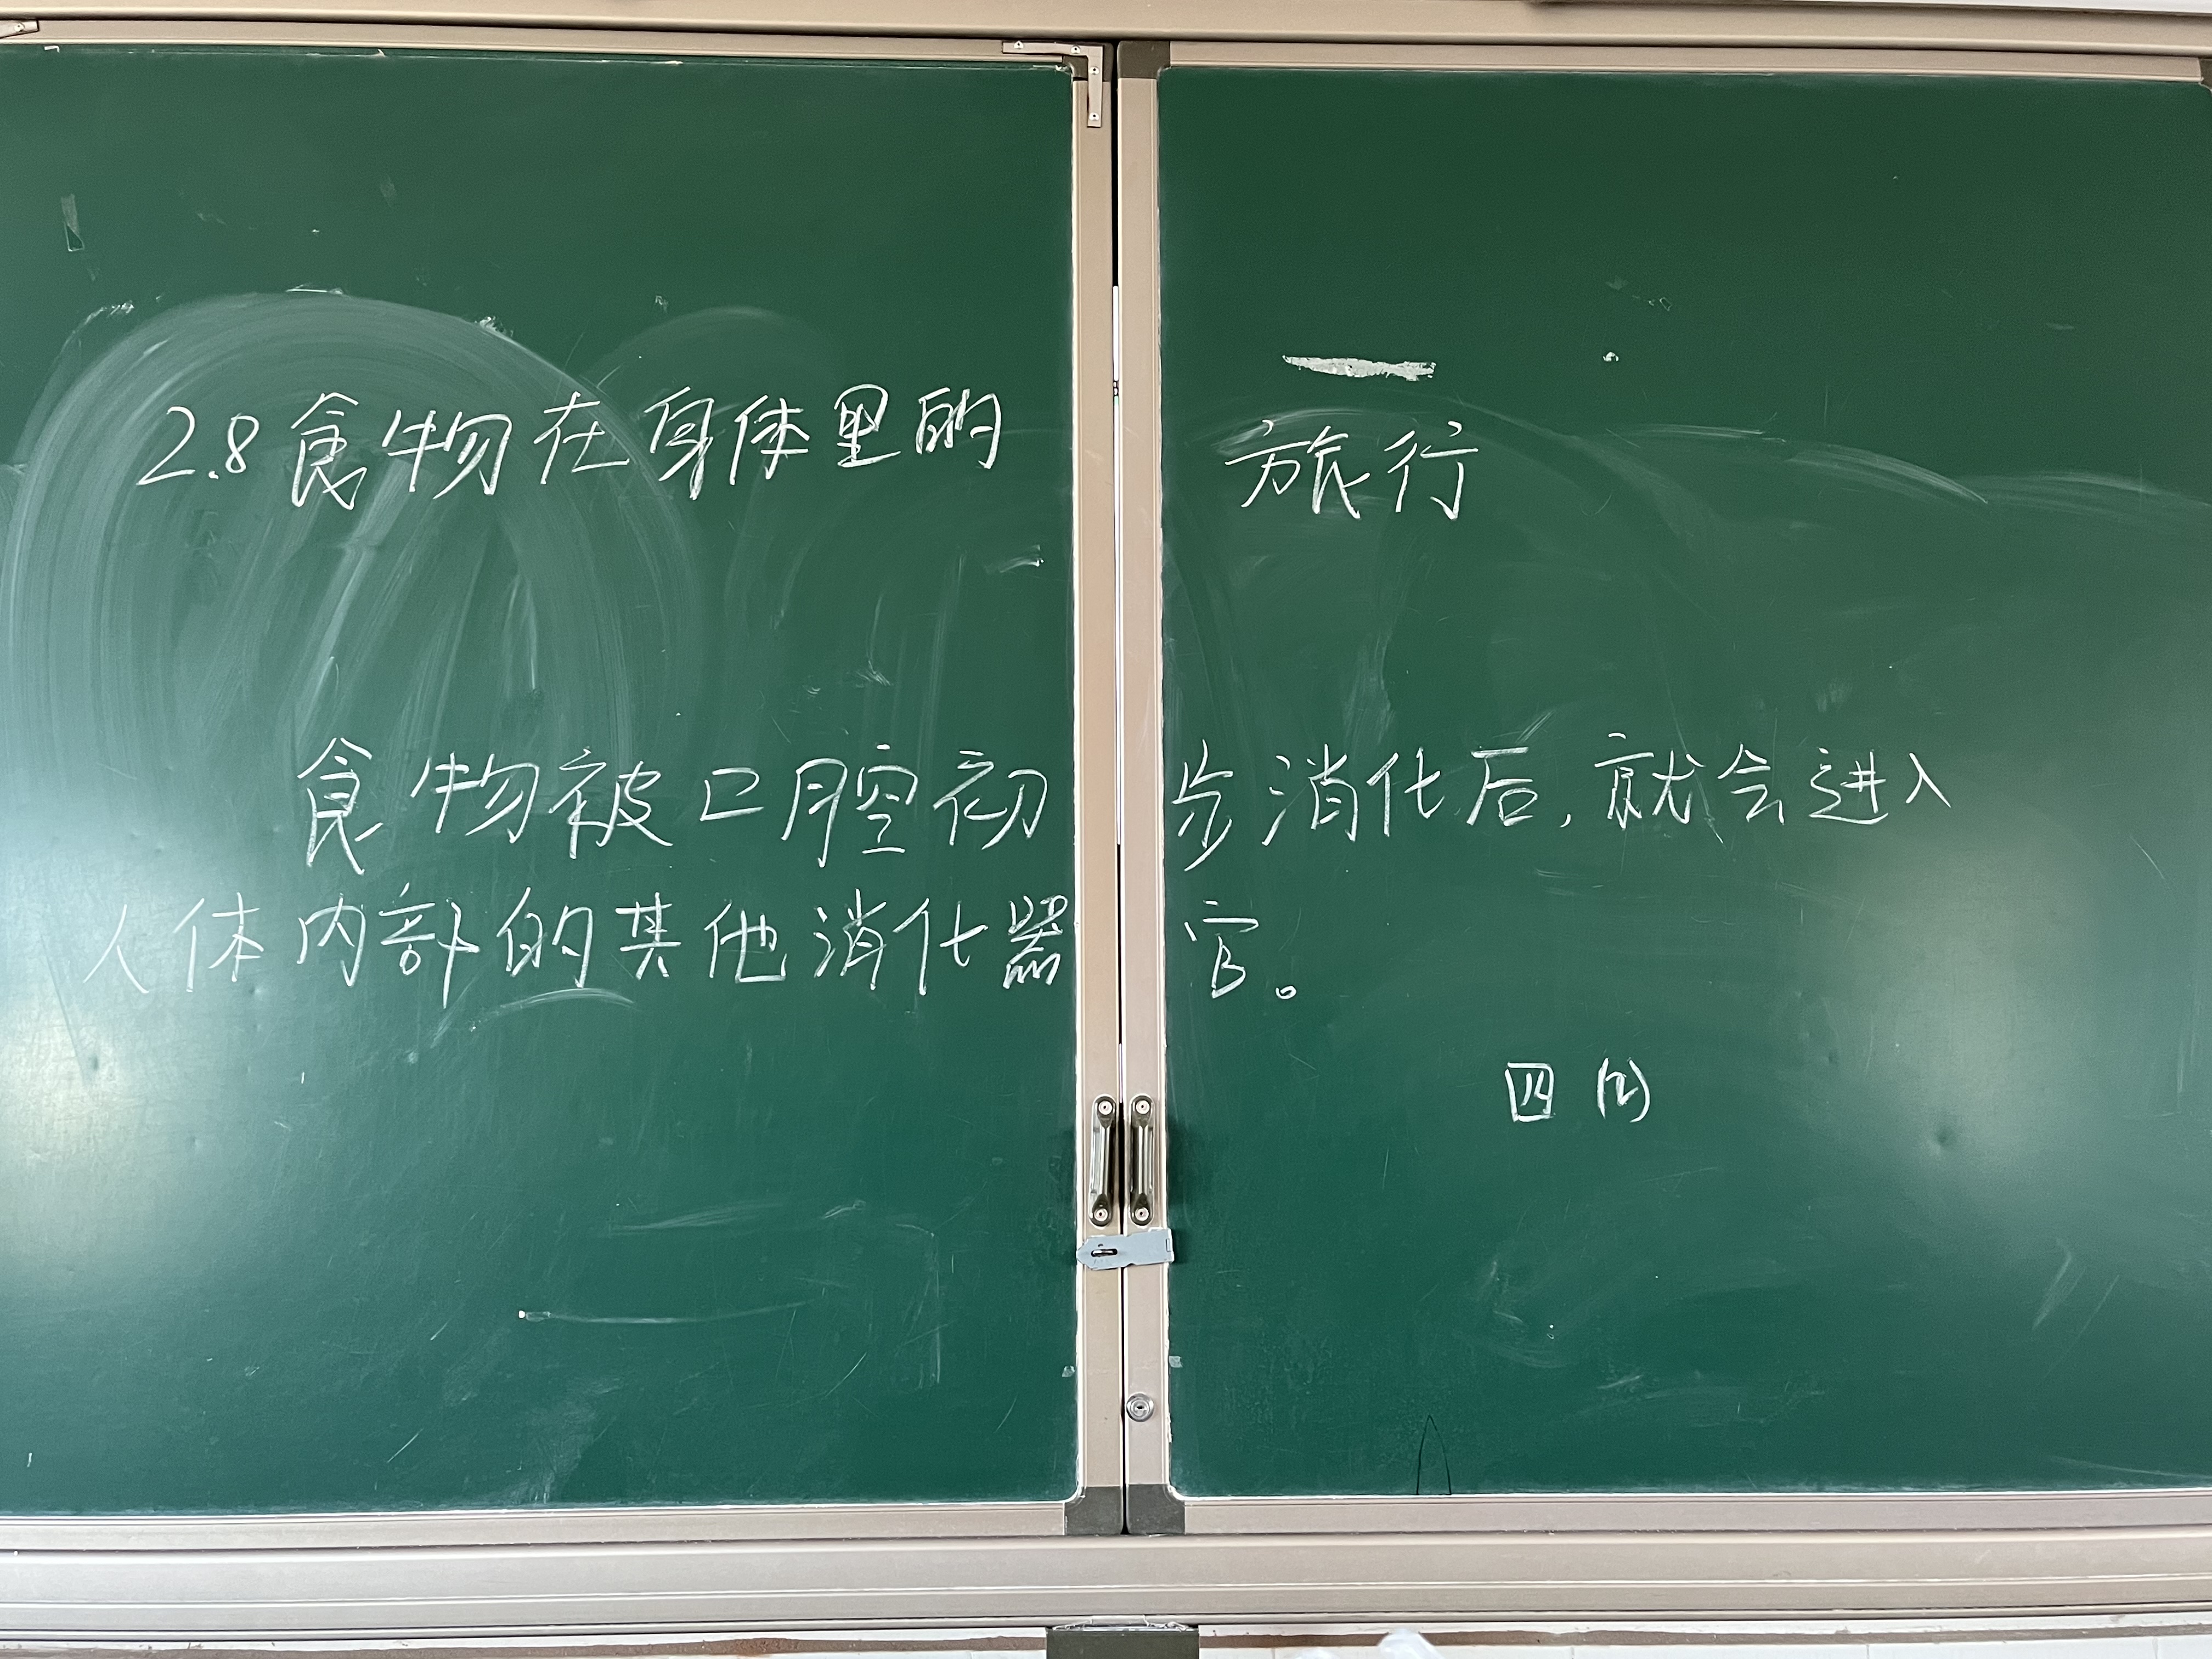 2.8食物在身体里的旅行
食物被口腔初步消化后,就会进入
人体内部的其他消化器官。
四(2)